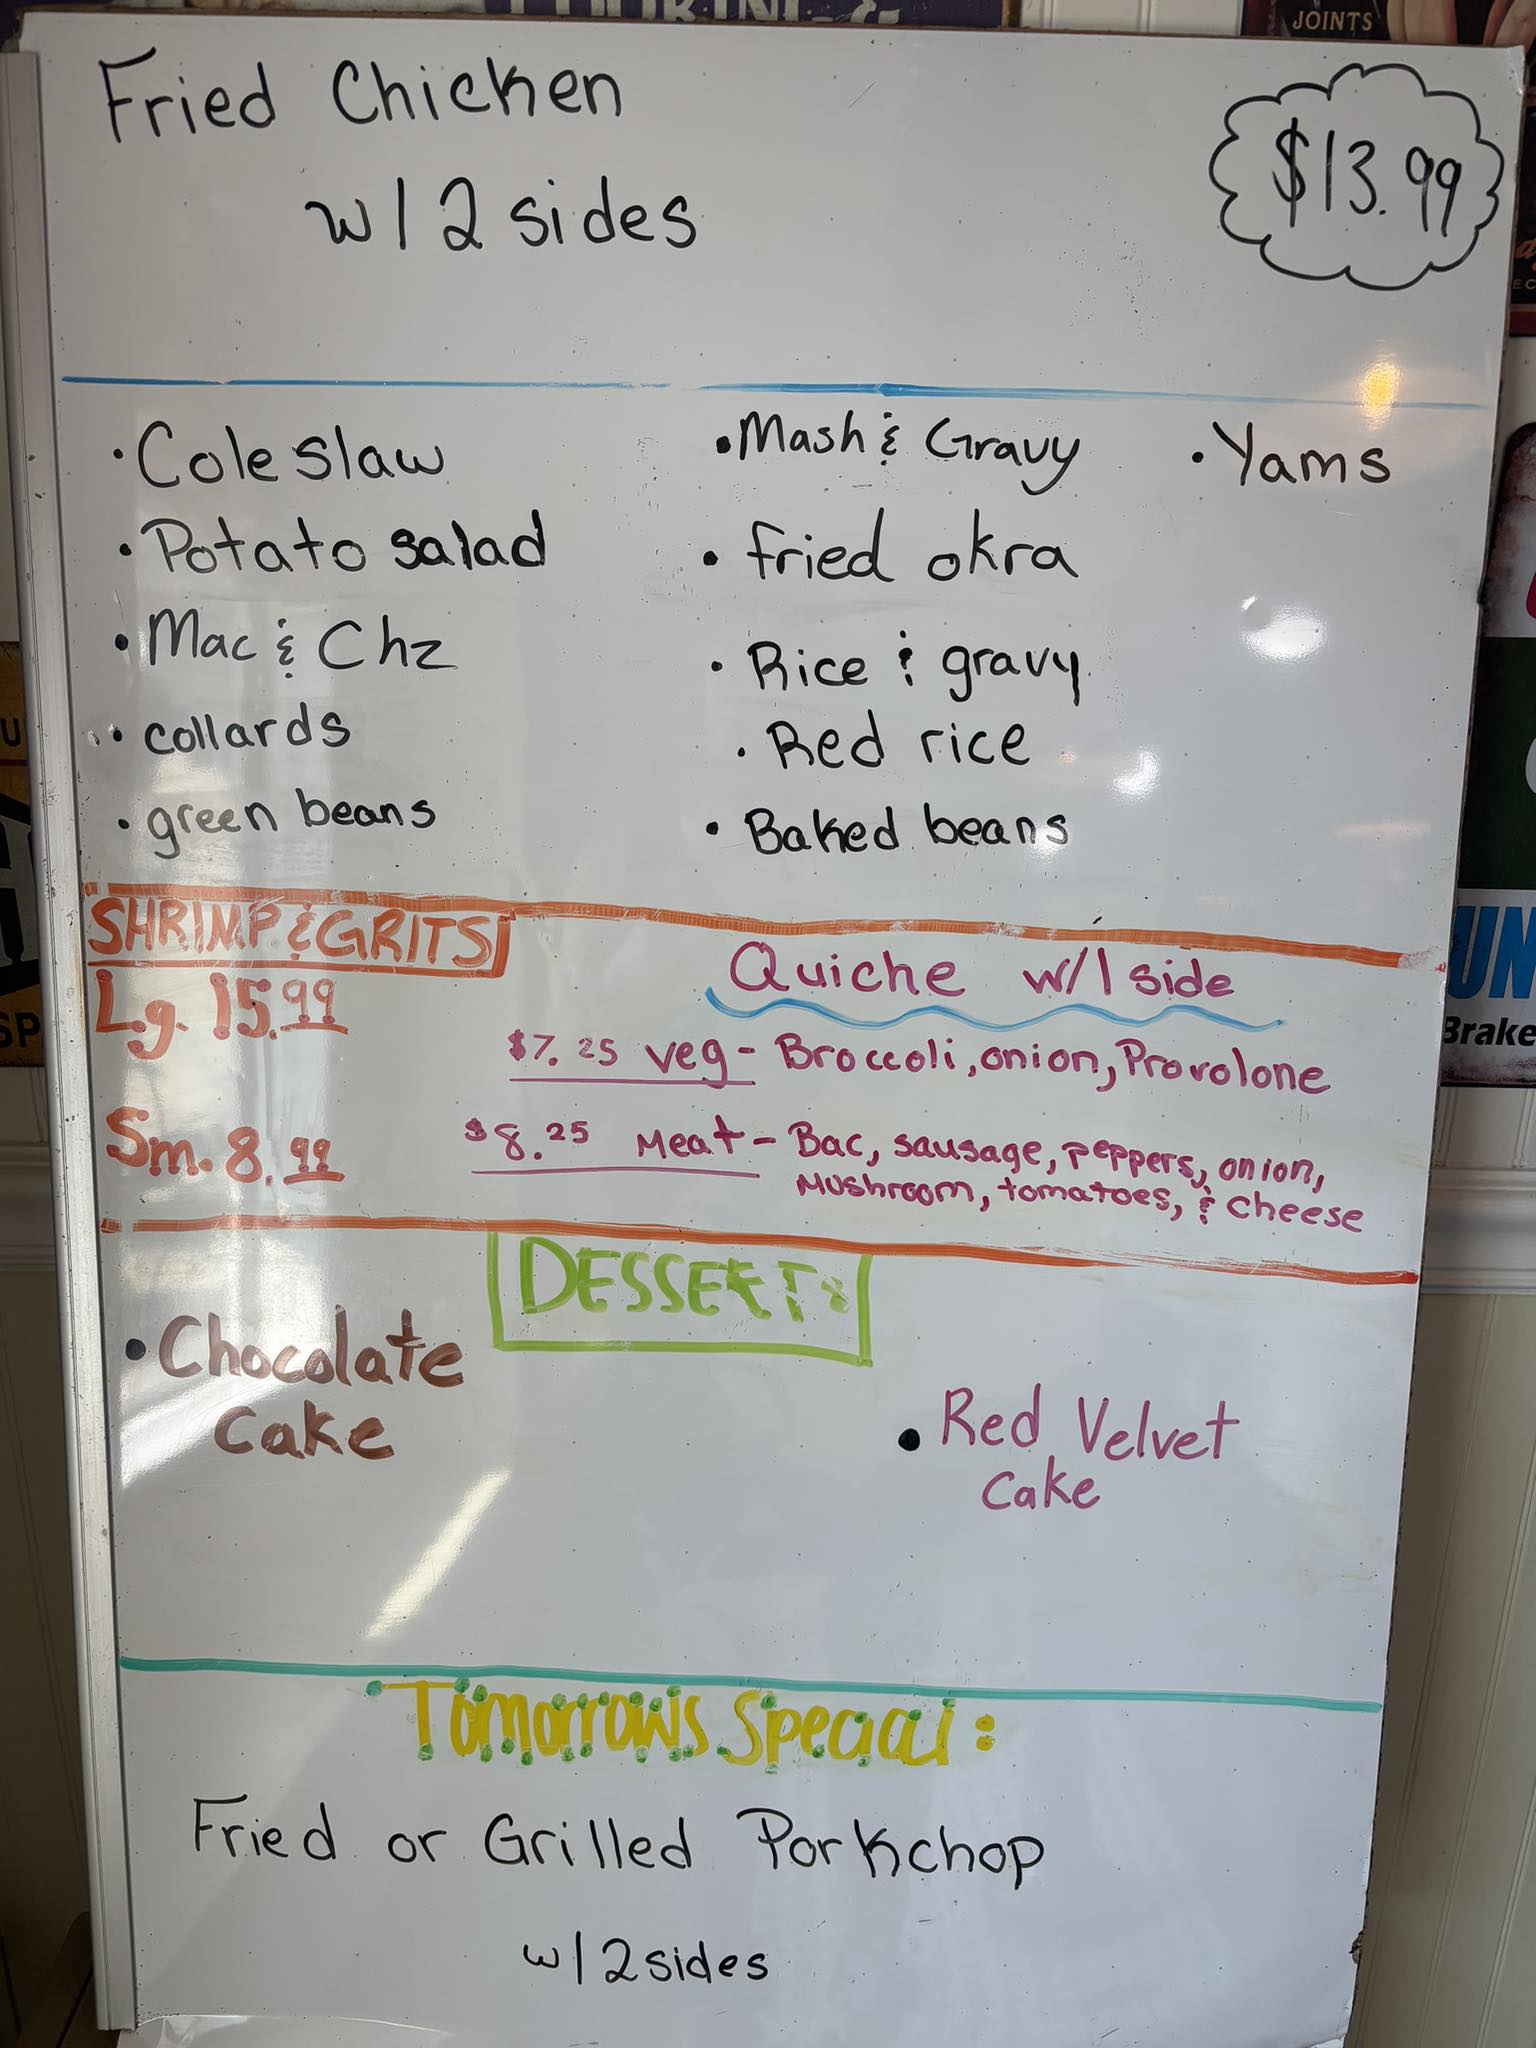 COOKING &
JOINTS
Fried Chicken
w/ 2 sides
$13.99
• Cole slaw
• Potato salad
• Mac & Chz
• collards
• green beans
• Mash & Gravy
• fried okra
• Rice & gravy
• Red rice
• Baked beans
• Yams
SHRIMP & GRITS
Lg. 15.99
Sm. 8.99
Quiche w/ 1 side
$7.25 veg - Broccoli, onion, Provolone
$8.25 Meat - Bac, sausage, peppers, onion,
Mushroom, tomatoes, & cheese
DESSERTS
• Chocolate
Cake
• Red Velvet
Cake
Tomorrows Special:
Fried or Grilled Porkchop
w/ 2 sides
UN
Brake
SP